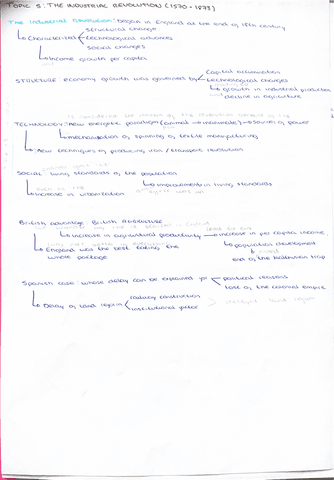 TOPIC 5: THE INDUSTRIAL REVOLUTION (1750 - 1873)
The Industrial Revolution: Began in England at the end of 18th century
Characterized structural change
technological advances
social changes
Income growth per capita
STRUCTURE: economy growth was governed by capital accumulation
technological changes
growth in industrial production
decline in agriculture
TECHNOLOGY: New energetic paradigm (animal → inanimate) → Sources of power
mechanization of spinning of textile manufacturing
New techniques of producing iron / transport revolution
SOCIAL: living standards of the population
Improvements in living standards
Increase in urbanization
British advantage: British
Increase in agricultural productivity → increase in per capita income
population development
England was the best taking the end of the Malthusian trap
whole package
Spanish case: whose delay can be explained for political reasons
lost of the colonial empire
Delay of land reform railway construction
institutional